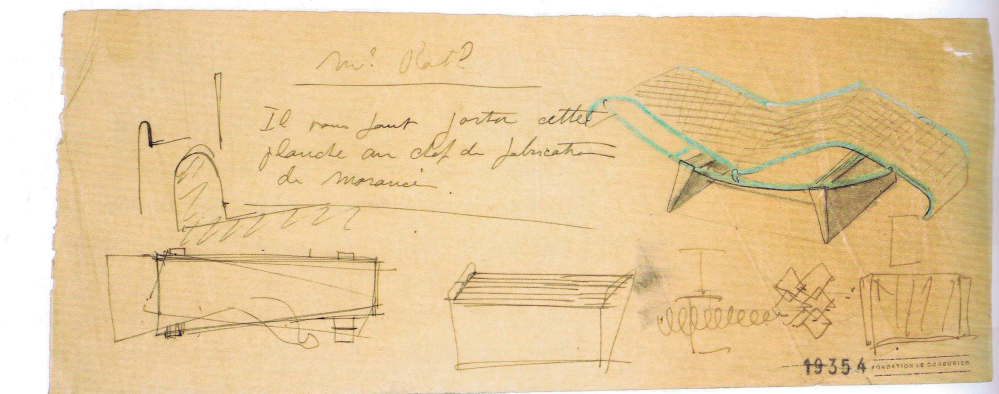 Il vous faut porter cette
planche au chef de fabrication
de Morancé.
19354 FONDATION LE CORBUSIER